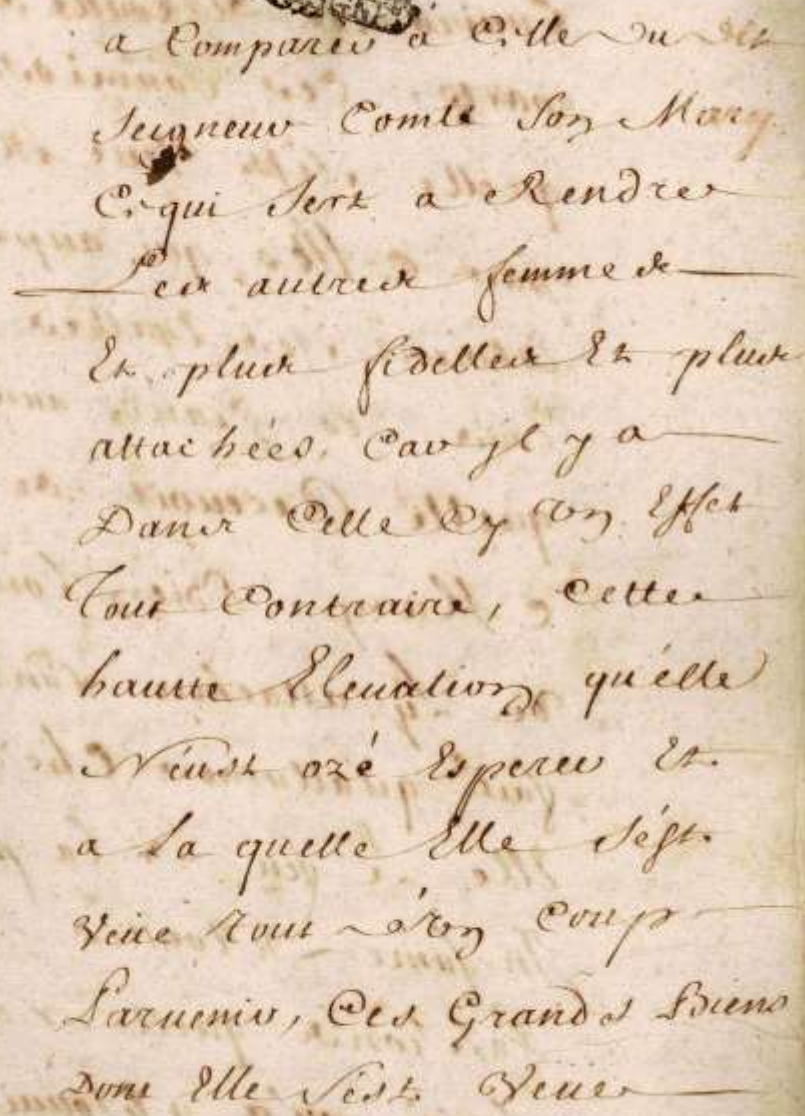 a Comparer a Celle du dit
Seigneur Comte Son Mary
Ce qui Sert a Rendre
Les autres femmes
Et plus fidelles Et plus
attachées. Car jl y a
Dans Celle Cy Un Effet
Tout Contraire, Cette
hautte Eleuation qu'elle
N'eust ozé Esperer Et
a La quelle Elle s'est
Veüe tout d'un Coup
Paruenir, Ces Grands Biens
Dont Elle s'est Veüe